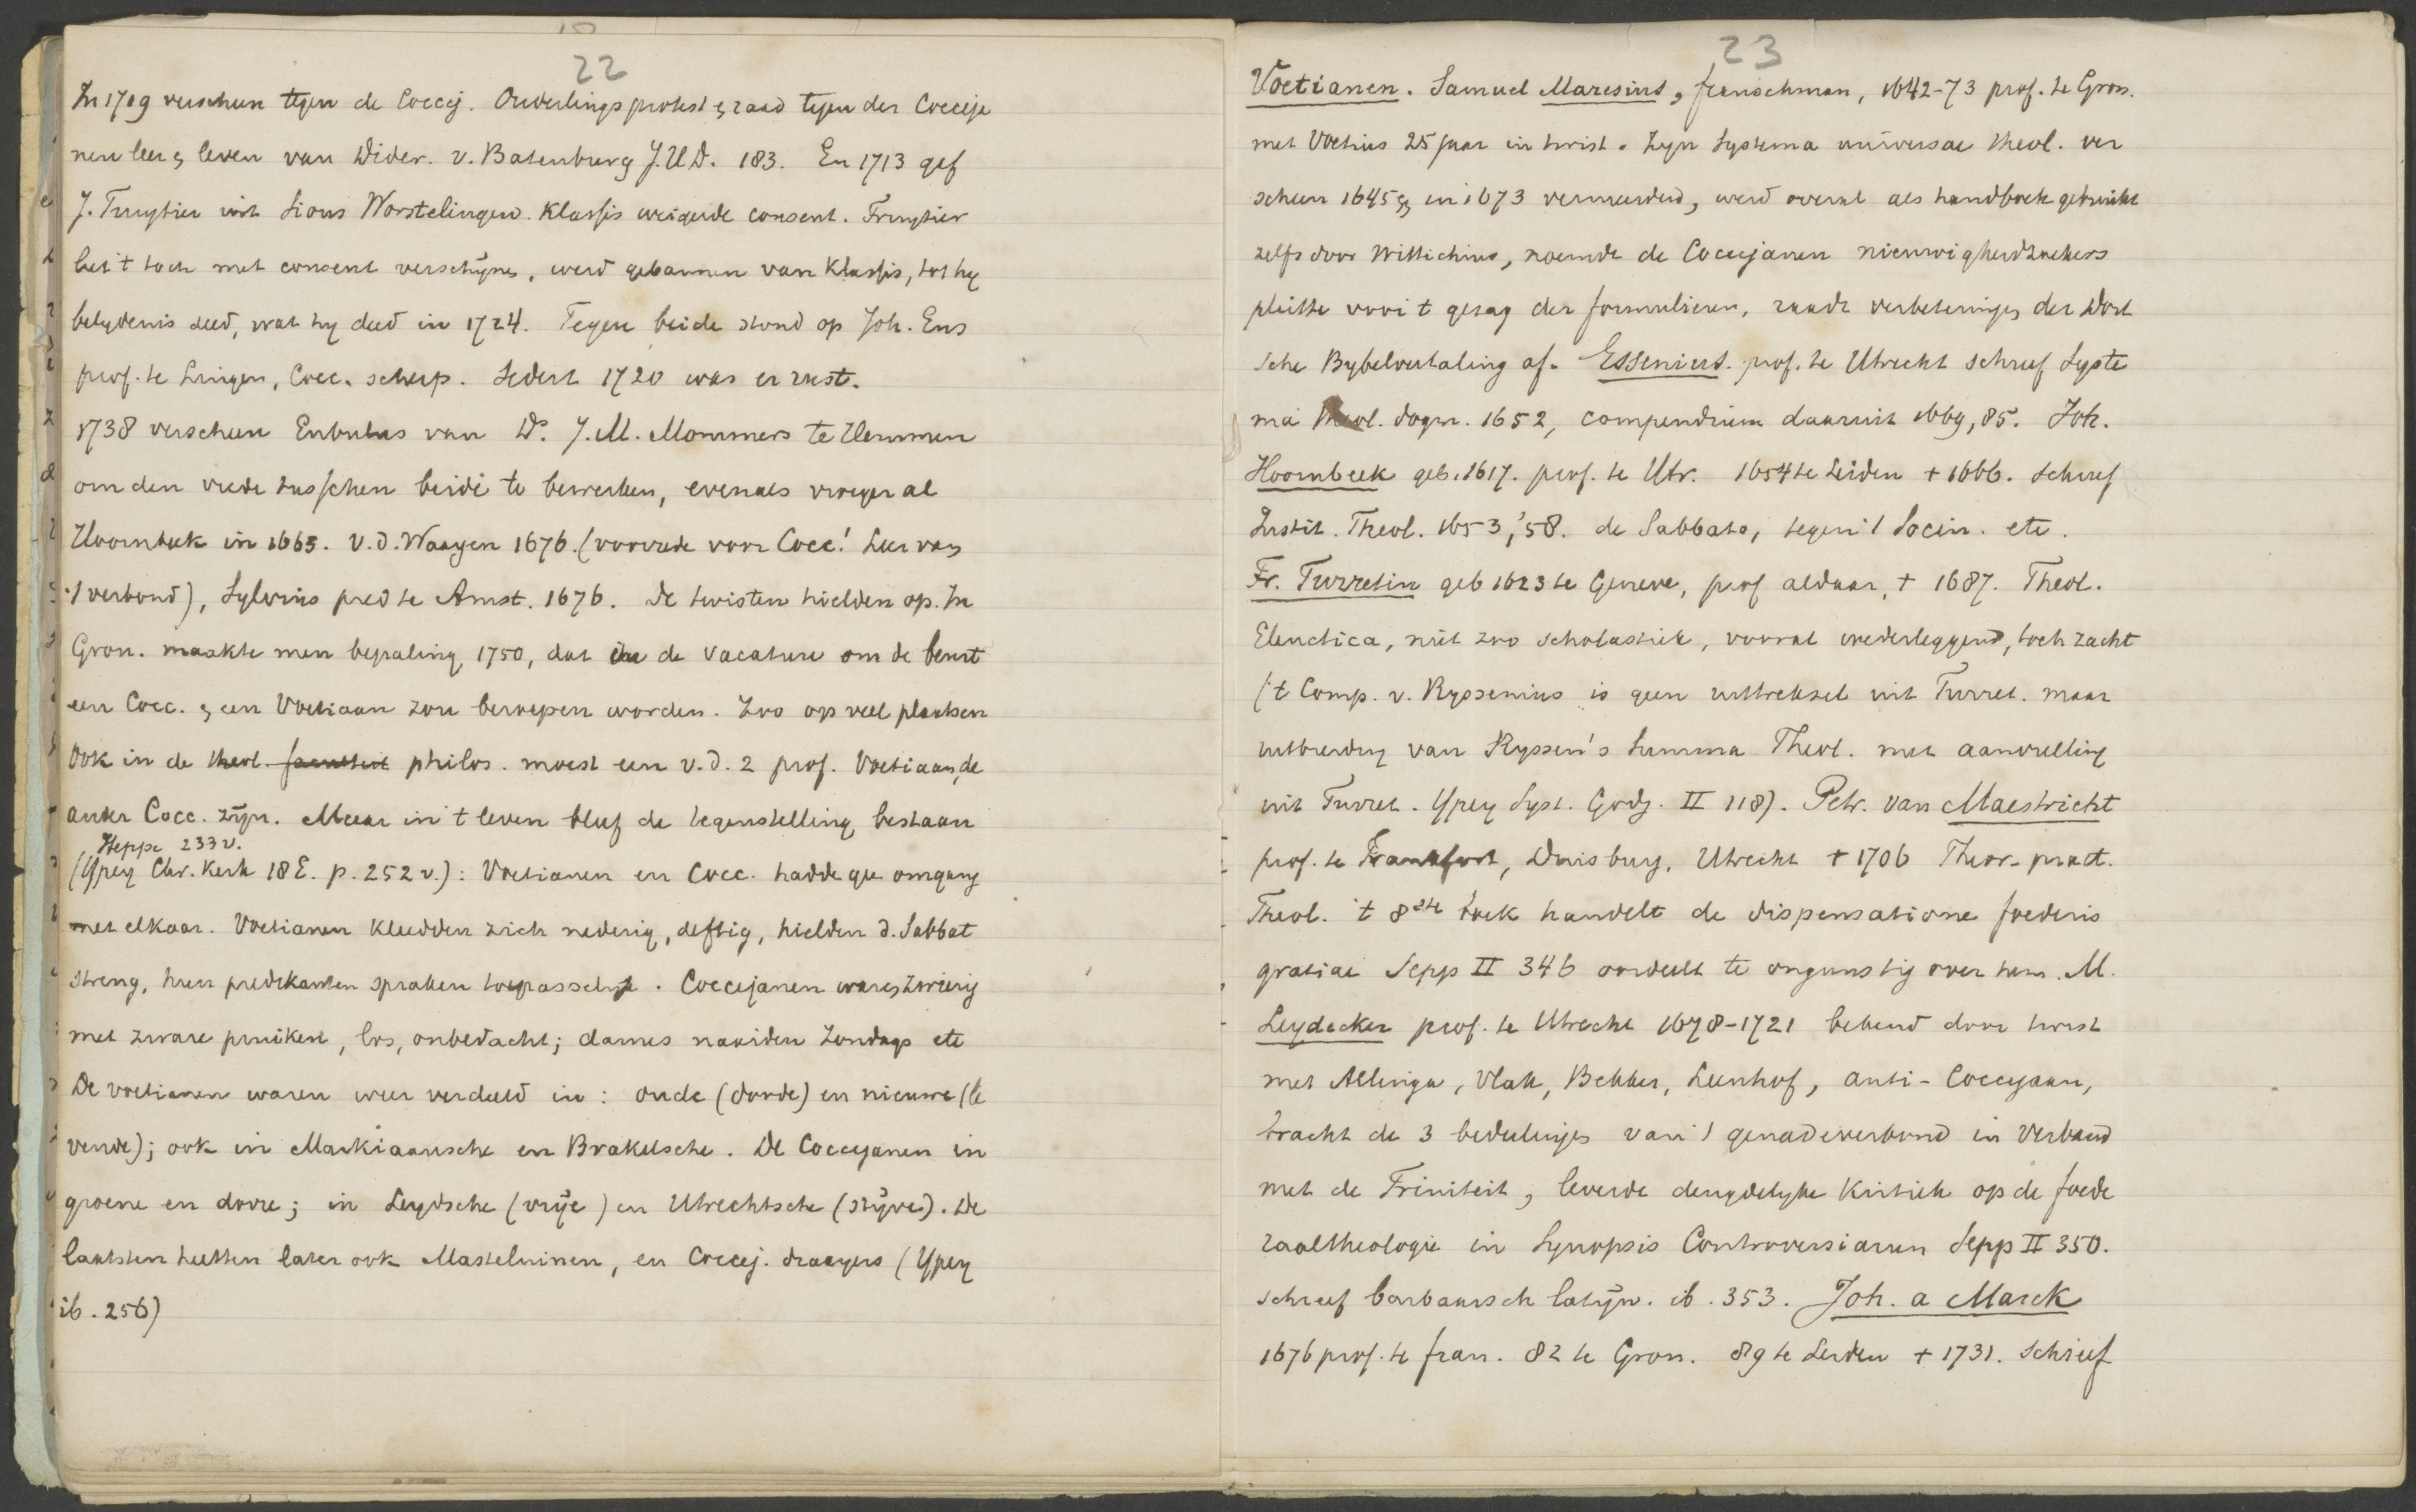 22
In 1709 verscheen tegen de Coccej. Ouderlings protest & raad tegen der Cocceja
nen leer & leven van Dider. v. Batenburg J.U.D. 183. En 1713 gaf
J. Fruytier uit Sions Worstelingen. Klassis weigerde consent. Fruytier
liet 't toch met consent verschijnen, werd gebannen van Klassis, tot hij
belydenis deed, wat hy deed in 1724. Tegen beide stond op Joh. Ens
prof. te Lingen, Cocc. scherp. Sedert 1720 was er rust.
1738 verscheen Eubulus van Ds. J.M. Mommers te Hemmen
om den vrede tusschen beide te bewerken, evenals vroeger al
Hoornbeek in 1663. v.d. Waayen 1676. (voorrede voor Cocc! Leer van
't verbond), Sylvius pred te Amst. 1676. De twisten hielden op. In
Gron. maakte men bepaling 1750, dat in de vacature om de beurt
een Cocc. & een Voetiaan zou beroepen worden. Zoo op veel plaatsen
Ook in de theol. faculteit philos. moest een v.d. 2 prof. Voetiaan, de
ander Cocc. zijn. Maar in 't leven bleef de tegenstelling bestaan
Heppe 233 v.
(Ypey Chr. Kerk 18 E. p. 252 v.): Voetianen en Cocc. hadde gee omgang
met elkaar. Voetianen kleedden zich nederig, deftig, hielden d. Sabbat
streng, hun predikanten spraken toepasselijk. Coccejanen waren zwierig
met zware pruiken, los, onbedacht; dames naaiden Zondags etc
De voetianen waren weer verdeeld in: oude (doode) en nieuwe (le
vende); ook in Markiaansche en Brakelsche. De Coccejanen in
groene en dorre; in Leydsche (vrije) en Utrechtsche (stijve). De
laatsten heetten later ook Mastelluinen, en Coccej. draayers (Ypey
ib. 256)
23
Voetianen. Samuel Maresius, franschman, 1642-73 prof. te Gron.
met Voetius 25 jaar in twist. Zijn Systema universae theol. ver
scheen 1645 & in 1673 vermeerderd, werd overal als handboek gebruikt
zelfs door Wittichius, noemde de Coccejanen nieuwigheidzoekers
pleitte voor 't gezag der formulieren, raadt verbeteringen der Dort
sche Bybelvertaling af. Essenius. prof. te Utrecht schreef Syste
ma theol. dogm. 1652, compendium daaruit 1669, 85. Joh.
Hoornbeek geb. 1617. prof. te Utr. 1654 te Leiden + 1666. schreef
Instit. Theol. 1653, '58. de Sabbato, tegen 't Socin. etc.
Fr. Turretin geb 1623 te Geneve, prof aldaar, + 1687. Theol.
Elenctica, niet zoo scholastiek, vooral wederleggend, toch zacht
('t Comp. v. Ryssenius is geen uittreksel uit Turret. maar
uitbreiding van Ryssen's Summa Theol. met aanvulling
uit Turret. Ypey Syst. Godg. II 118). Petr. van Maestricht
prof. te Frankfort, Duisburg, Utrecht + 1706 Theor-pract.
Theol. 't 8ste boek handelt de dispensatione foederis
gratiae Sepp II 346 oordeelt te ongunstig over hem. M.
Leydecker prof. te Utrecht 1678-1721 bekend door twist
met Allinga, Vlak, Bekker, Leenhof, anti-Coccejaan,
bracht de 3 bedeelinges van 't genadeverbond in Verband
met de Triniteit, leverde degydelyke Kritiek op de foede
raaltheologie in Synopsis Controversiarum Sepp II 350.
schreef barbaarsch latijn. ib. 353. Joh. a Marck
1676 prof. te fran. 82 te Gron. 89 te Leiden + 1731. Schreef